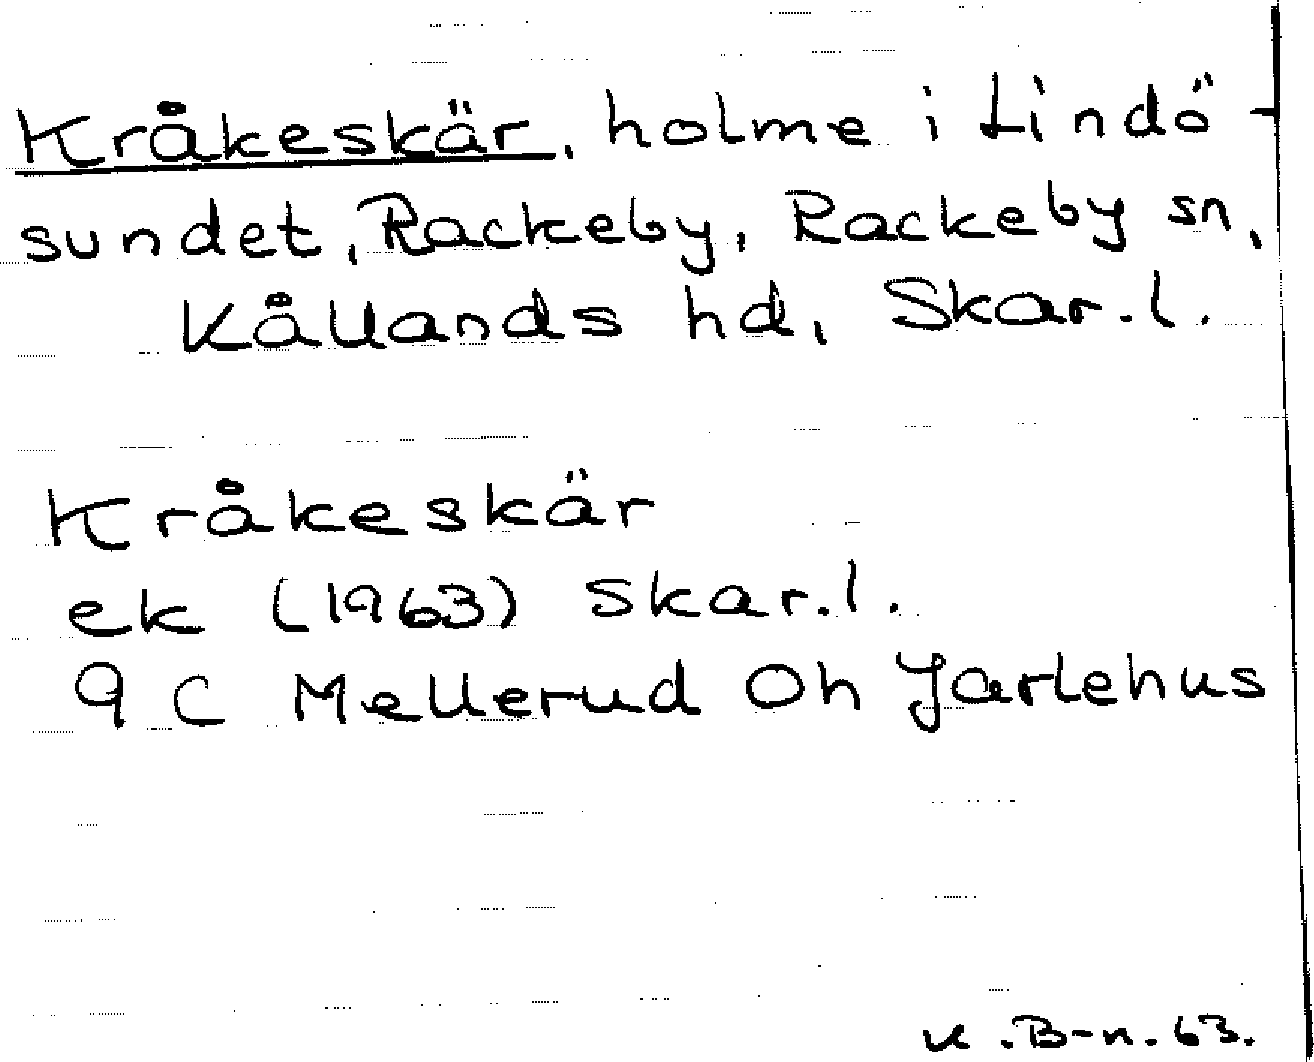 Kråkeskär, holme i Lindö-
sundet, Rackeby, Rackeby sn,
Kållands hd, Skar.l.
Kråkeskär
ek (1963) Skar.l.
9 C Mellerud Oh Jarlehus
K.B-n.63.